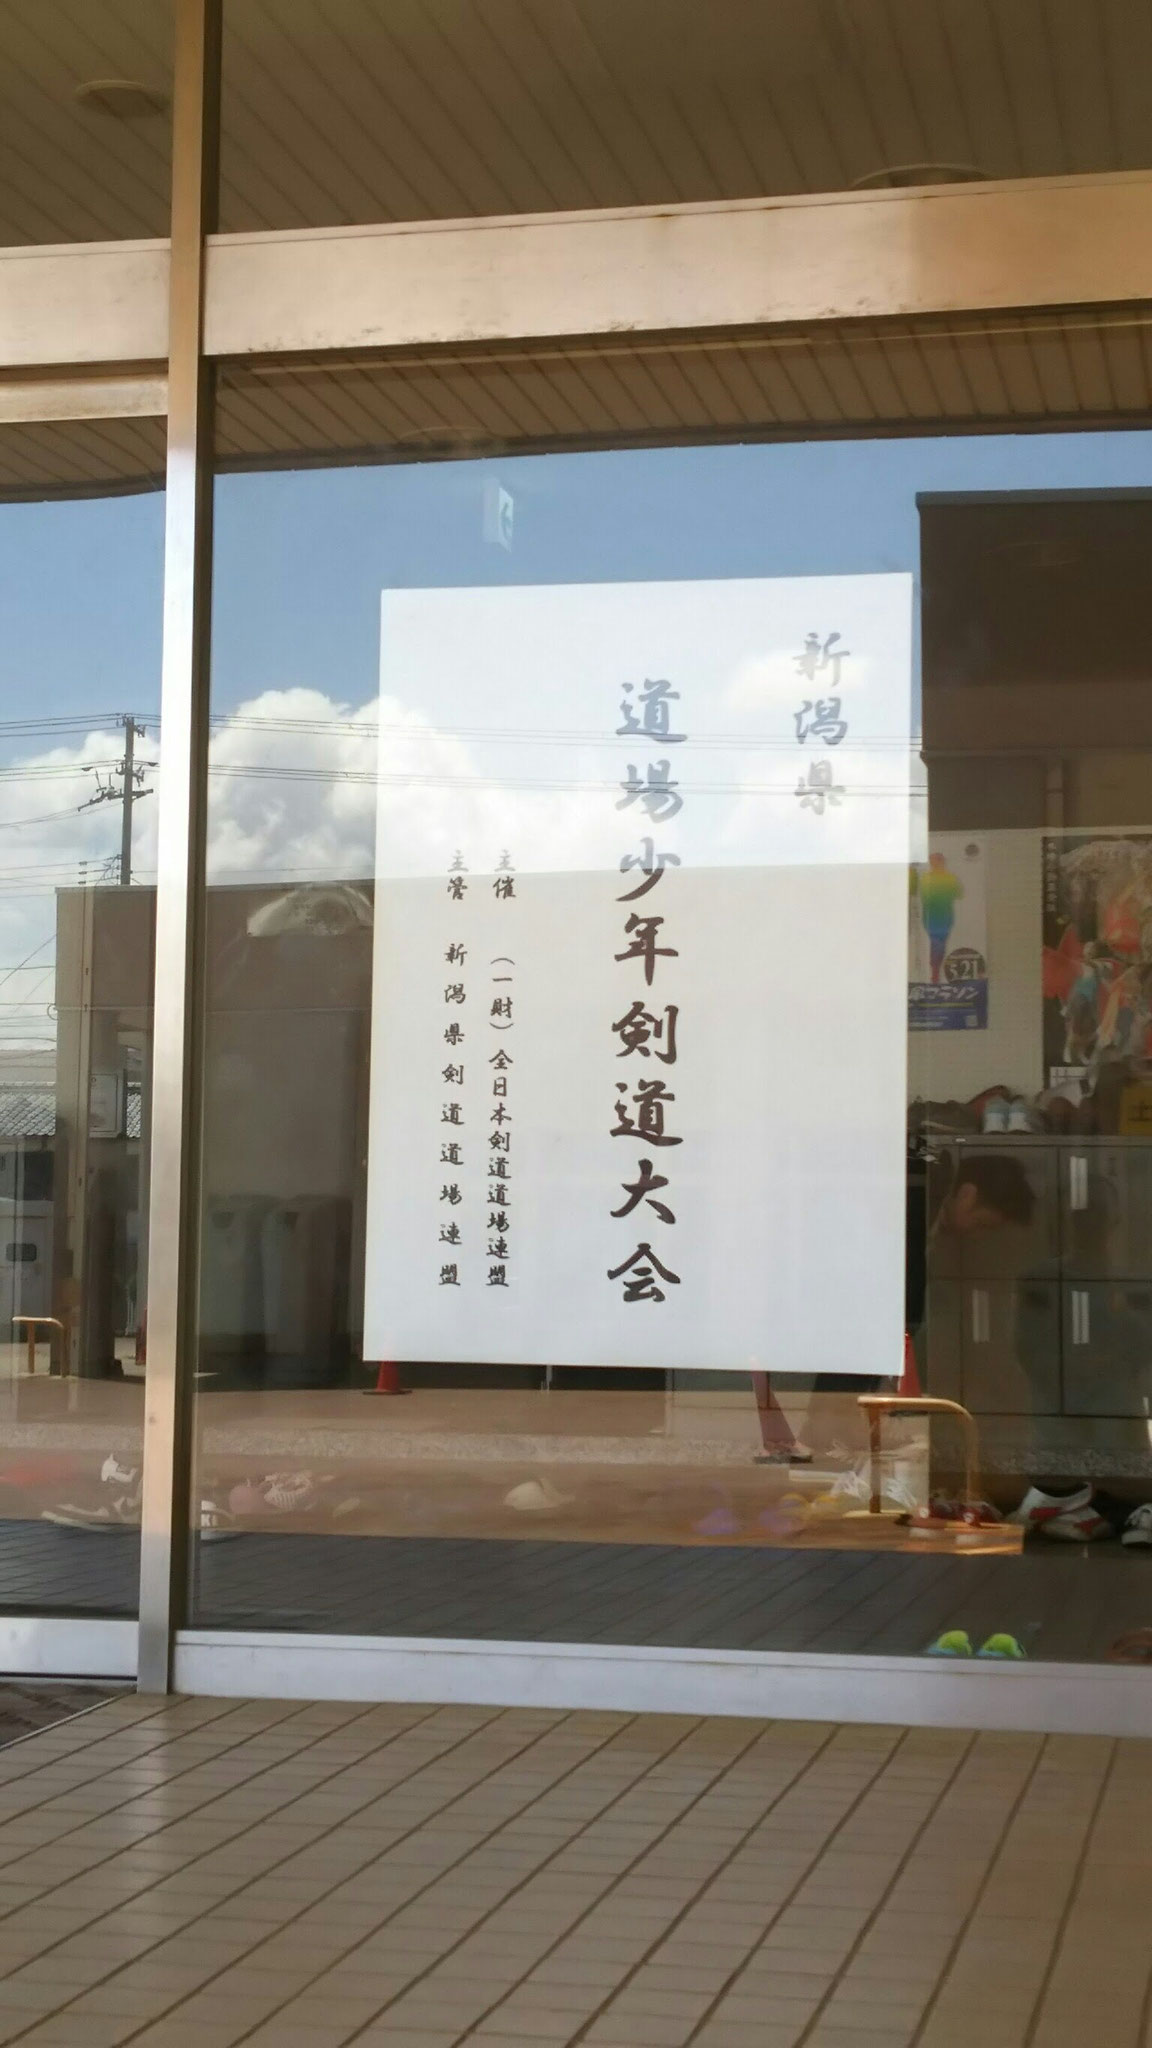 新潟県
道場少年剣道大会
主催 （一財）全日本剣道道場連盟
主管 新潟県剣道道場連盟
5.21
マラソン
土